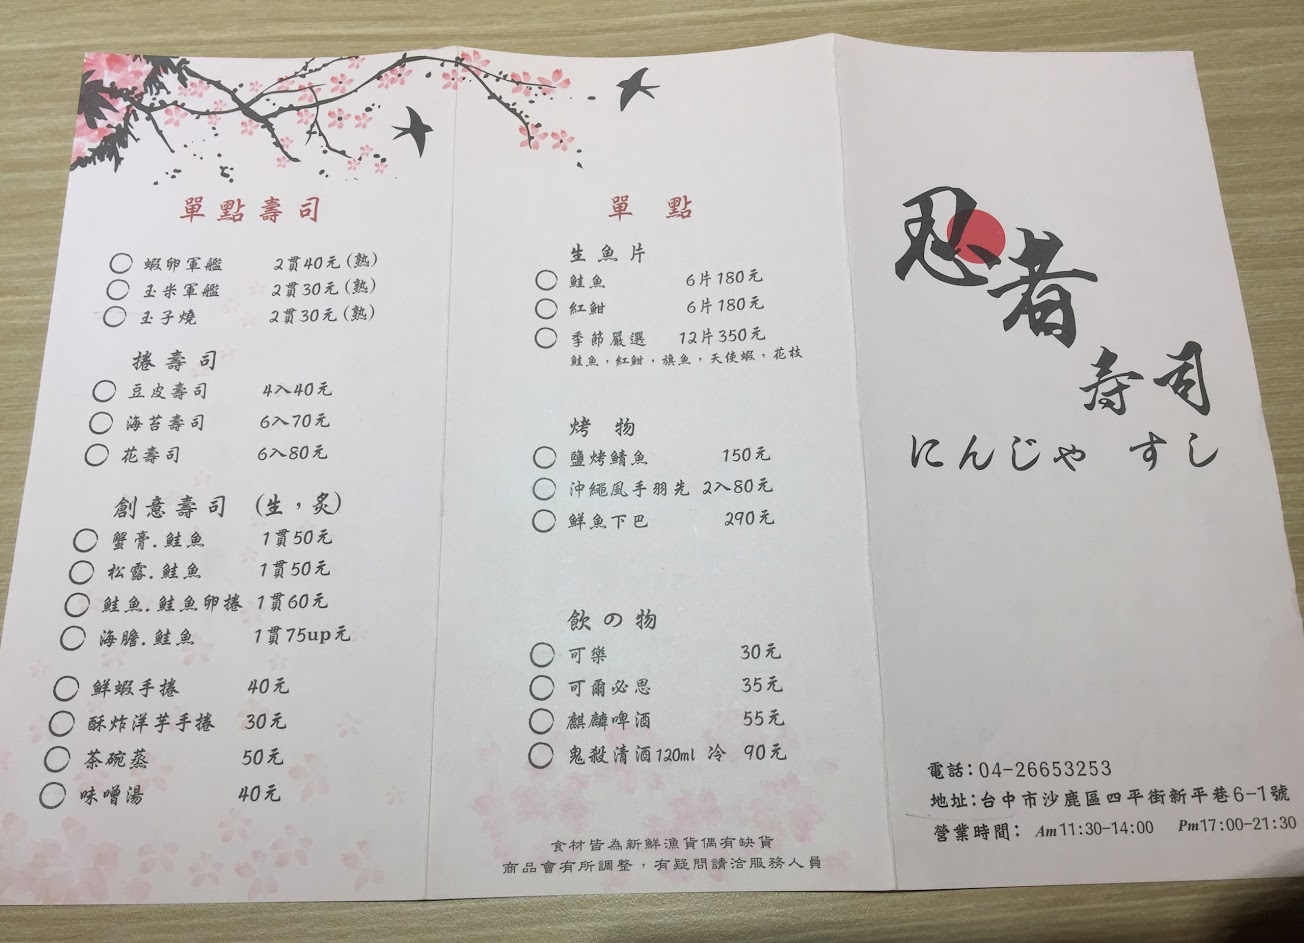 單點壽司
蝦卵軍艦 2貫40元(熟)
玉米軍艦 2貫30元(熟)
玉子燒 2貫30元(熟)
捲壽司
豆皮壽司 4入40元
海苔壽司 6入70元
花壽司 6入80元
創意壽司 (生,炙)
蟹膏.鮭魚 1貫50元
松露.鮭魚 1貫50元
鮭魚.鮭魚卵捲 1貫60元
海膽.鮭魚 1貫75up元
鮮蝦手捲 40元
酥炸洋芋手捲 30元
茶碗蒸 50元
味噌湯 40元
單點
生魚片
鮭魚 6片180元
紅魽 6片180元
季節嚴選 12片350元
鮭魚,紅魽,旗魚,天使蝦,花枝
烤物
鹽烤鯖魚 150元
沖繩風手羽先 2入80元
鮮魚下巴 290元
飲の物
可樂 30元
可爾必思 35元
麒麟啤酒 55元
鬼殺清酒120ml 冷 90元
食材皆為新鮮漁貨偶有缺貨
商品會有所調整,有疑問請洽服務人員
忍者
寿司
にんじゃ すし
電話:04-26653253
地址:台中市沙鹿區四平街新平巷6-1號
營業時間: Am11:30-14:00 Pm17:00-21:30